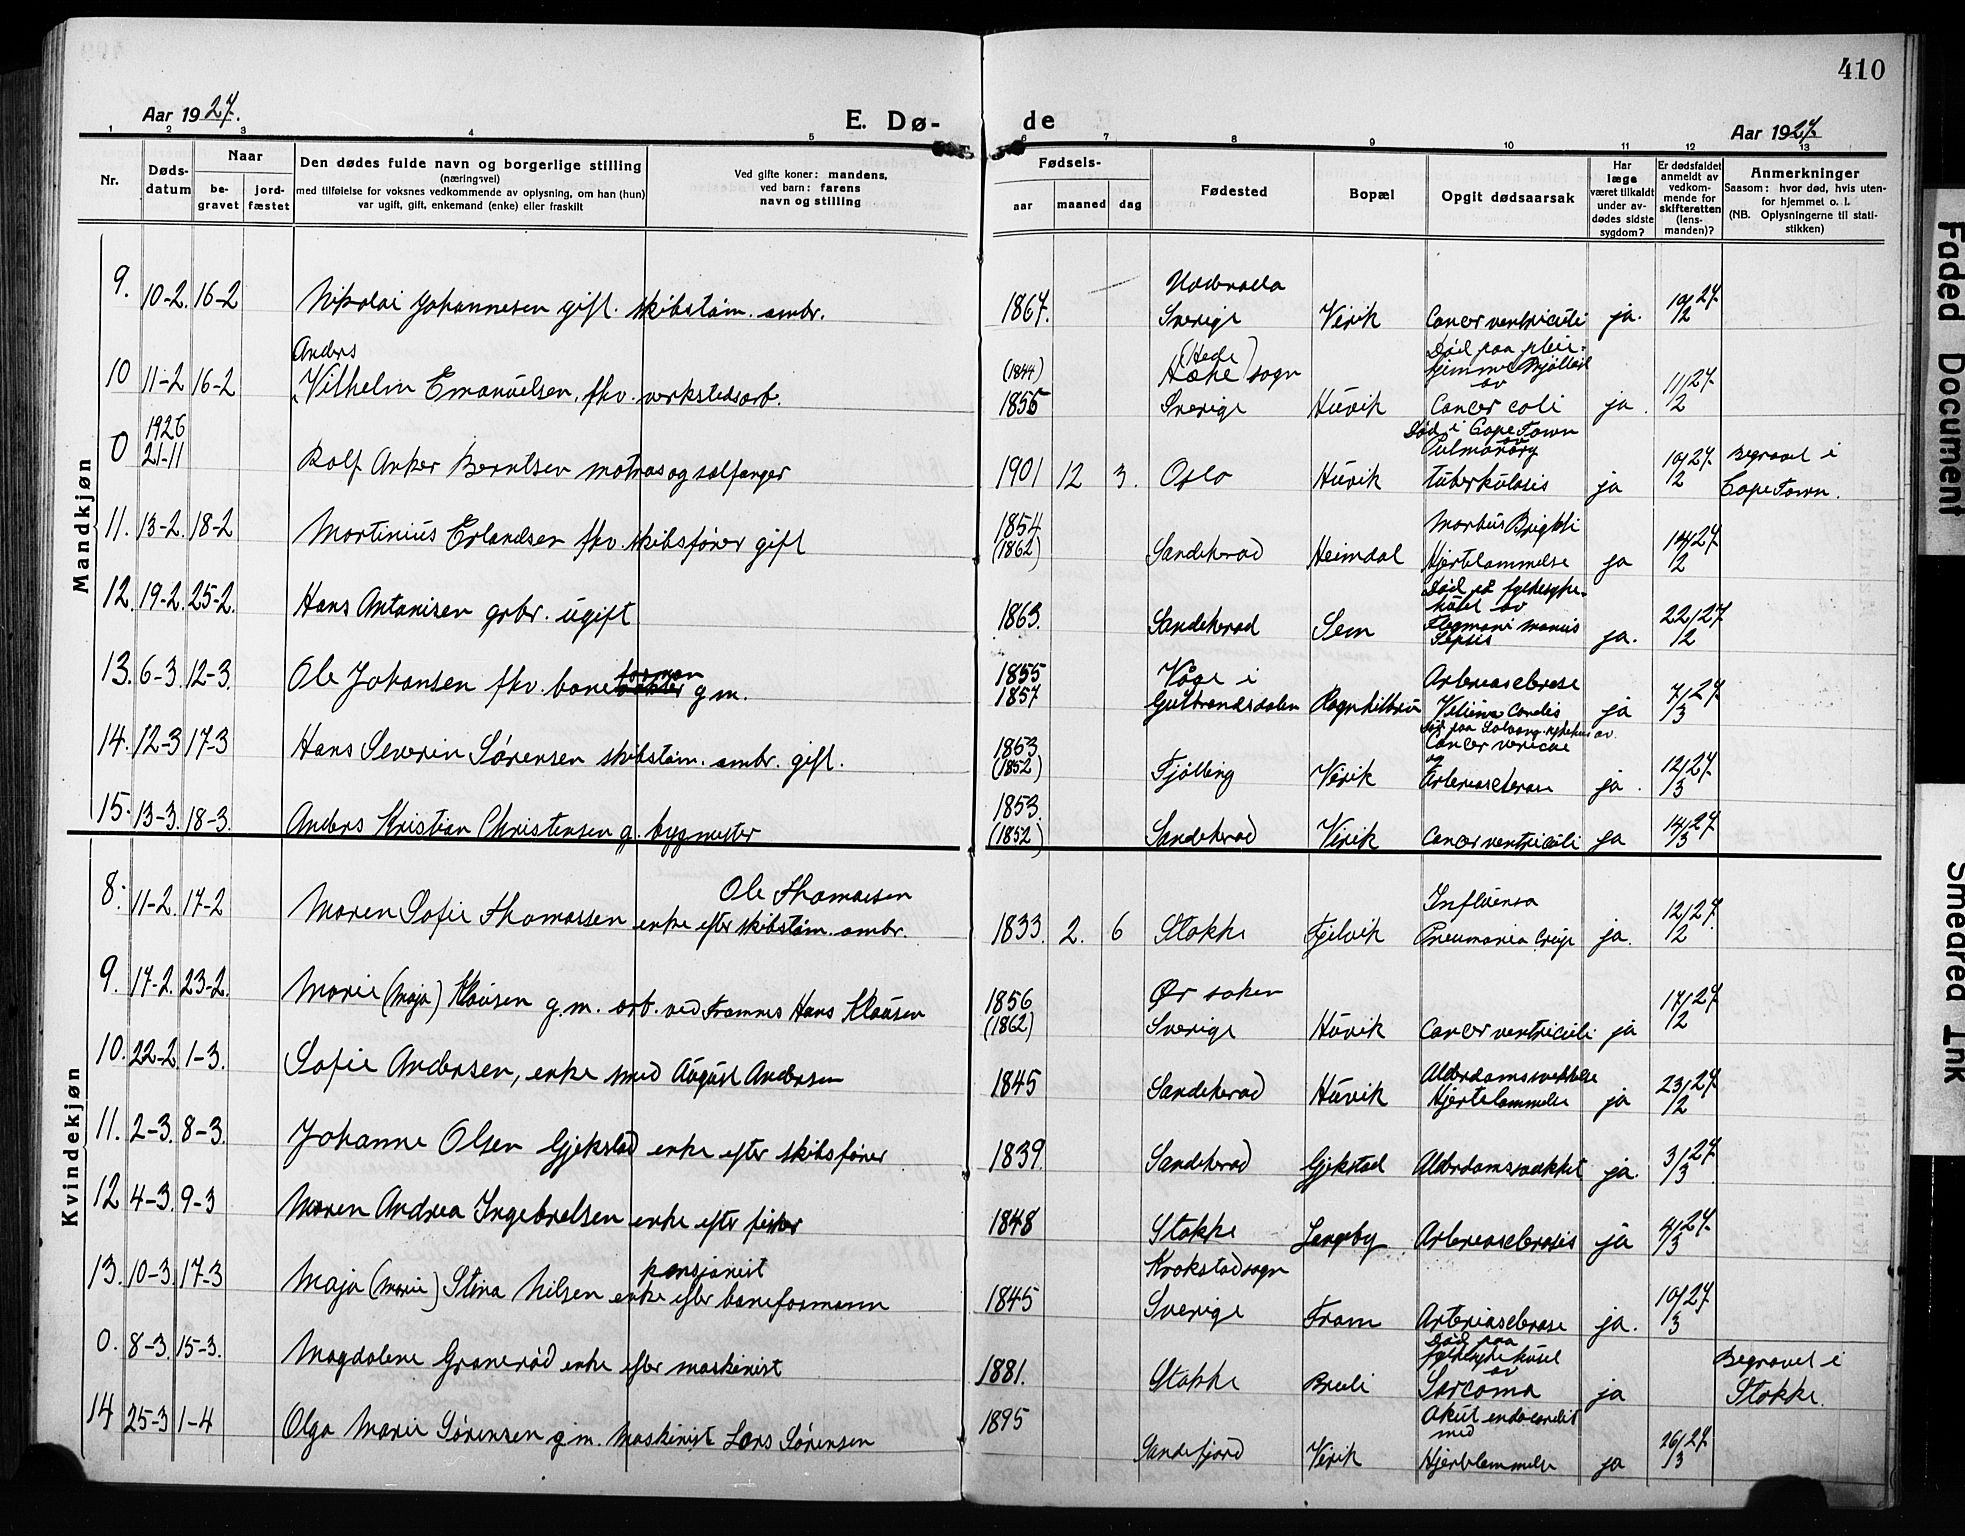 410
Aar 1927.
E. Dø-
de
Aar 1927.
1 2 3 4 5 6 7 8 9 10 11 12 13
Nr.
Døds-
datum
Naar
be-
gravet
jord-
fæstet
Den dødes fulde navn og borgerlige stilling
(næringsvei)
med tilføielse for voksnes vedkommende av oplysning, om han (hun)
var ugift, gift, enkemand (enke) eller fraskilt
Ved gifte koner: mandens,
ved barn: farens
navn og stilling
Fødsels-
aar
maaned
dag
Fødested
Bopæl
Opgit dødsaarsak
Har
læge
været tilkaldt
under av-
dødes sidste
sygdom?
Er dødsfaldet
anmeldt av
vedkom-
mende for
skifteretten
(lens-
manden)?
Anmerkninger
Saasom: hvor død, hvis uten-
for hjemmet o. l.
(NB. Oplysningerne til stati-
stikken)
Mandkjøn
9. 10-2. 16-2 Nikolai Johannesen gift. skibstøm. arbr. 1867. Sverige Virik Cancer ventriculi ja. 10/2 27.
Anders
10 11-2 16-2 Vilhelm Emanuelsen, fhv. verkstedsarb. (1844) 1855 (Hede) sogn Sverige Huvik Død paa pleie-
hjemmet Mjøllløst
av
Cancer coli ja. 11/2 27.
0 1926 21-11 Rolf Anker Berntsen matros og selfanger 1901 12 3. Oslo Huvik Død i Cape Town
av
Pulmonary
tuberkulosis ja 10/2 27. Begravet i
Cape Town.
11. 13-2. 18-2 Martinius Erlandsen fhv. skibsfører gift 1854 (1862) Sandeherad Heimdal Morbus Brighti
Hjertelammelse ja 14/2 27.
12. 19-2. 25-2. Hans Antonisen grbr. ugift 1863. Sandeherad Sem Død på fylkessyke-
huset av
Flegmone manus
Sepsis ja. 22/2 27
13. 6-3. 12-3. Ole Johansen fhv. baneforman g m. 1855 1857 Våge i
Gudbrandsdalen Ragnhilbru Arteriosclerose
Vitium Cordis ja 7/3 27.
14. 12-3 17-3 Hans Severin Sørensen skibstøm. arbr. gift. 1863 (1852) Fjølling Virik Død paa Solvang sykehus av
Cancer vesicae
og
Arteriosclerose ja. 12/3 27.
15. 13-3. 18-3. Anders Kristian Christensen g. bygmester 1853. (1852) Sandeherad Virik Cancer ventriculi ja 14/3 27.
Kvindekjøn
8. 11-2. 17-2 Maren Sofie Thomassen enke efter skibstøm. arbr. Ole Thomassen 1833. 2. 6 Stokke Fjelvik Influensa
Pneumonia Crup ja. 12/2 27.
9. 17-2. 23-2. Marie (Maja) Klausen g.m. arb. ved Framnes Hans Klausen 1856 (1862) Ør soken
Sverige Huvik Cancer ventriculi ja 17/2 27.
10. 22-2 1-3. Sofie Andersen, enke med August Andersen 1845 Sandeherad Huvik Alderdomssvekkelse
Hjertelammelse ja 23/2 27.
11. 2-3. 8-3. Johanne Olsen Gjekstad enke efter skibsfører 1839. Sandeherad Gjekstad Alderdomssvækket ja. 3/3 27.
12 4-3. 9-3 Maren Andrea Ingebretsen enke efter fisker 1848 Stokke Langeby Arteriosclerosis ja 4/3 27.
13. 10-3. 17-3 Maja (Marie) Stina Nilsen enke efter pensjonist
baneformann 1845 Krokstad sogn
Sverige Fram Arteriosclerose ja. 10/3 27.
0. 8-3. 15-3. Magdalene Granerød enke efter maskinist 1881. Stokke Breili Død paa
fylkessykehuset
av
Sarcoma ja Begravet i
Stokke.
14 25-3 1-4 Olga Marie Sørensen g m. Maskinist Lars Sørensen 1895 Sandefjord Virik Akut endocardit
med
Hjertelammelse ja 26/3 27.
Faded Document
Smeared Ink